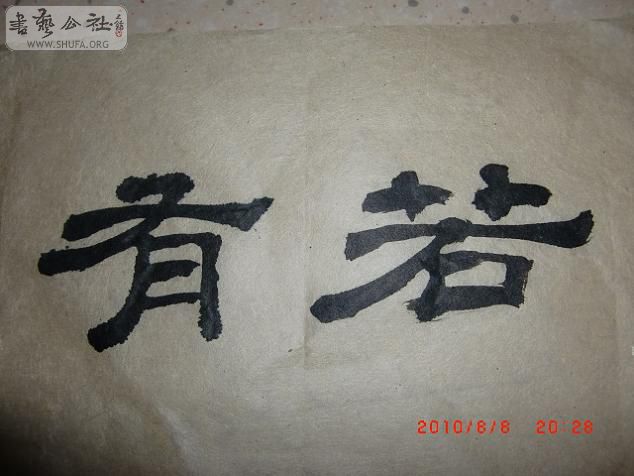 書藝公社
WWW.SHUFA.ORG
有若
2010/8/8 20:28